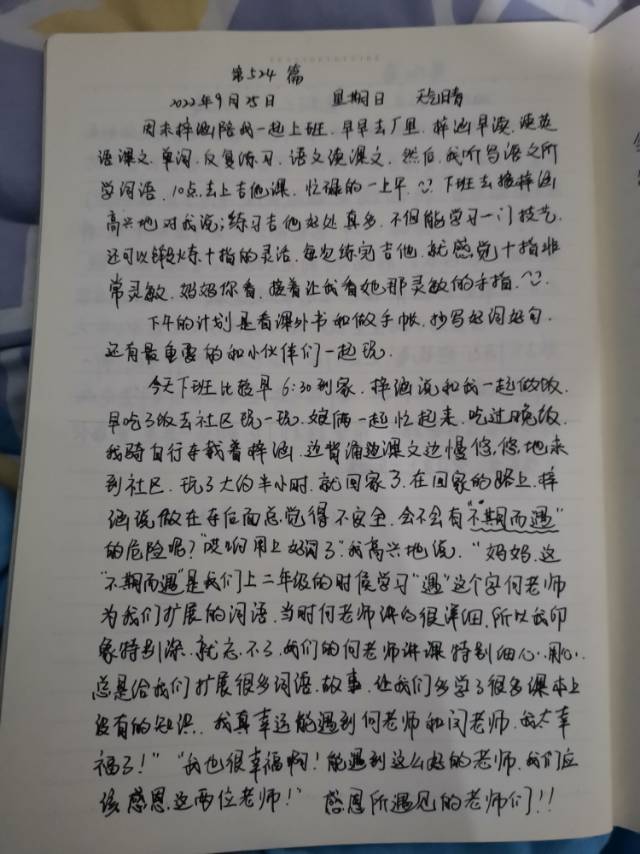 第524篇
2022年9月25日 星期日 天气晴
周末梓涵陪我一起上班.早早去厂里.梓涵早读.读英
语课文.单词.反复练习.语文读课文.然后.我听写语文所
学词语.10点去上吉他课.忙碌的一上午.下班去接梓涵
高兴地对我说;练习吉他好处真多.不但能学习一门技艺.
还可以锻炼十指的灵活.每次练完吉他.就感觉十指非
常灵敏.妈妈你看.接着让我看她那灵敏的手指.
下午的计划是看课外书和做手帐.抄写好词好句.
还有最重要的和小伙伴们一起玩.
今天下班比较早6:30到家.梓涵说和我一起做饭.
早吃了饭去社区玩一玩.娘俩一起忙起来.吃过晚饭.
我骑自行车载着梓涵.边背诵边课文边慢悠.悠地来
到社区.玩了大约半小时.就回家了.在回家的路上.梓
涵说做在车后面总觉得不安全.会不会有"不期而遇"
的危险呢?"哎哟用上好词了".我高兴地说."妈妈.这
"不期而遇"是我们上二年级的时候学习"遇"这个字何老师
为我们扩展的词语.当时何老师讲的很详细.所以我印
象特别深.就忘.不了.我们的何老师讲课特别细心.用心.
总是给我们扩展很多词语.故事.让我们多学了很多课本上
没有的知识.我真幸运能遇到何老师和闫老师.我太幸
福了!""我也很幸福啊!能遇到这么好的老师.我们应
该感恩.这两位老师!" 感恩所遇见的老师们!!